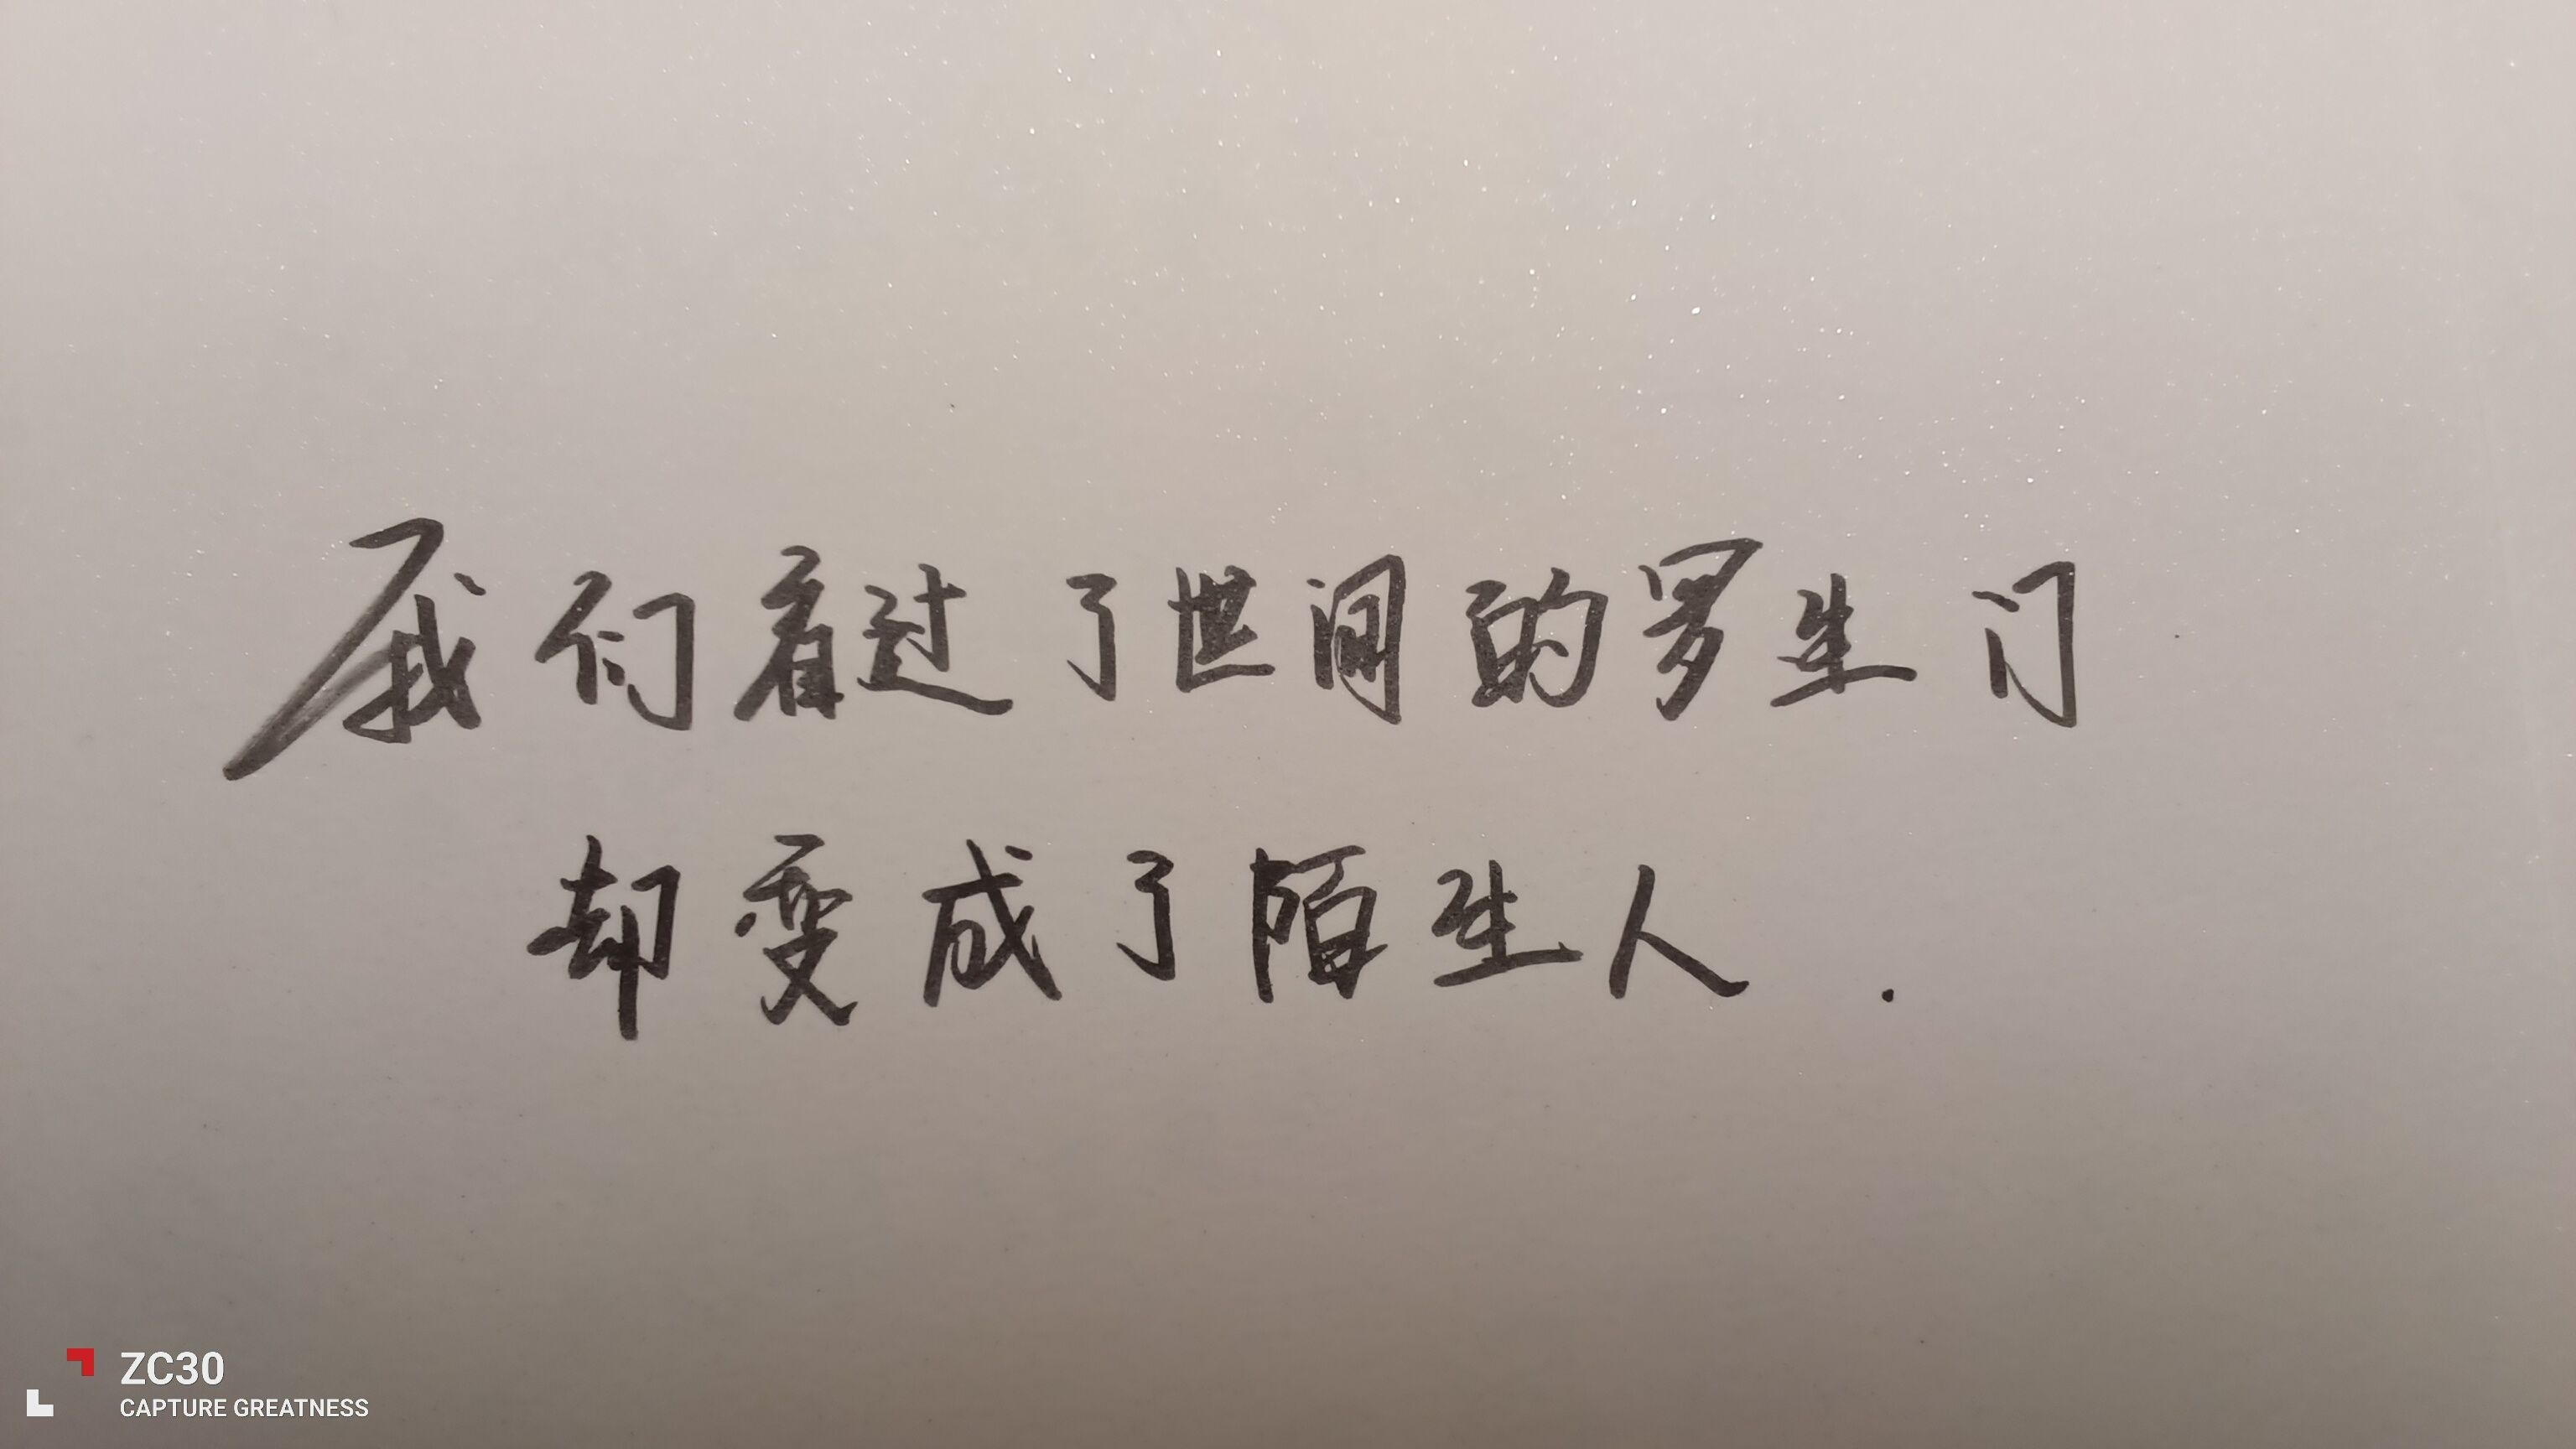 我们看过了世间的罗生门
却变成了陌生人.
ZC30
CAPTURE GREATNESS